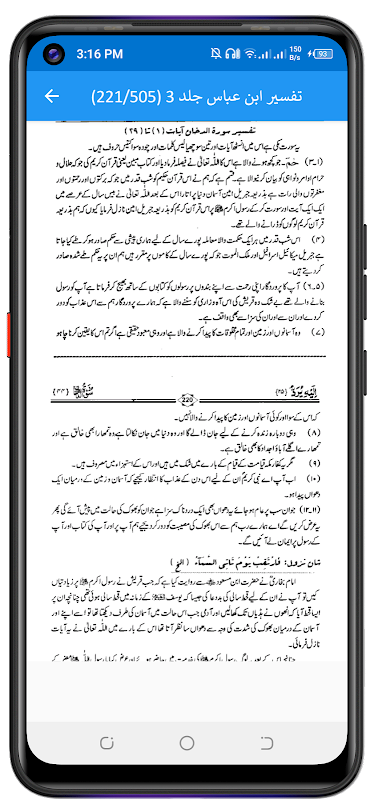 3:16 PM 150 B/s 93
تفسیر ابن عباس جلد 3 (221/505)
تفسیر سورۃ الدخان آیات (۱) تا (۲۹)
یہ سورت مکی ہے اس میں انسٹھ آیات اور تین سو چھیالیس کلمات اور چودہ سو اکتیس حروف ہیں۔
(۱۔۳) حٰمٓ۔ جو کچھ ہونے والا ہے اس کا اللہ تعالیٰ نے فیصلہ فرما دیا اور کتاب مبین یعنی قرآن کریم کی جو کہ حلال و
حرام اوامر و نواہی کو بیان کرنیوالا ہے۔ قسم ہے کہ ہم نے اس قرآن حکیم کو شب قدر میں جو کہ برکتوں اور رحمتوں اور
مغفرتوں والی رات ہے بذریعہ جبریل امین آسمان دنیا پر اتارا اس کے بعد اللہ تعالیٰ نے بیس سال کے عرصے میں
ایک ایک آیت اور سورت کر کے رسول اکرم پر اس قرآن کریم کو بذریعہ جبریل امین نازل فرمایا کیوں کہ ہم بذریعہ
قرآن کریم لوگوں کو ڈرانے والے تھے۔
(۴) اس شب قدر میں ہر ایک حکمت والا معاملہ پورے سال کے لیے ہماری پیشی سے حکم صادر ہو کر طے کیا جاتا
ہے جبریل میکائیل اسرافیل اور ملک الموت جو کہ پورے سال کے کاموں پر مقرر ہیں ہم ان پر یہ حکم طے شدہ صادر
کر دیتے ہیں۔
(۵۔۶) آپ کا پروردگار اپنی رحمت سے اپنے بندوں پر رسولوں کو کتابوں کے ساتھ بھیج کر فرماتا ہے آپ کو رسول
بنانے والے تھے بے شک وہ قریش کی اس آہ و زاری کو سننے والا ہے کہ ہمارے پروردگار ہم سے اس عذاب کو دور
کر دے اور ان سے اور ان کی سزا سے بھی واقف ہے۔
(۷) وہ آسمانوں اور زمین اور تمام مخلوقات کا پیدا کرنے والا ہے اور وہی معبود حقیقی ہے اگر تم اس کا یقین کرنا چاہو
الیہ یرد (۲۵) 220 {۴۴}
کہ اس کے سوا اور کوئی آسمانوں اور زمین کا پیدا کرنے والا نہیں۔
(۸) وہی دوبارہ زندہ کرنے کے لیے جان ڈالے گا اور وہ دنیا میں جان نکالتا ہے وہ تمھارا بھی خالق ہے اور
تمھارے اگلے آباؤ اجداد کا بھی خالق ہے۔
(۹) مگر یہ کفار مکہ قیامت کے قیام کے بارے میں شک میں ہیں اور اس کے استہزاء میں مصروف ہیں۔
(۱۰) اب آپ اے نبی کریم ان کے لیے اس دن کے عذاب کا انتظار کیجیے کہ آسمان و زمین کے درمیان ایک
دھواں پیدا ہو۔
(۱۱۔۱۲) جو ان سب پر عام ہو جائے یہ دھواں بھی ایک دردناک سزا ہے جو ان کو بھوک کی حالت میں پیش آئے گی پھر
یہ عرض کریں گے اے ہمارے رب ہم سے اس بھوک کی مصیبت کو دور کر دیجیے ہم آپ پر اور آپ کی کتاب اور آپ
کے رسول پر ایمان لے آئیں گے۔
شان نزول: فَارْتَقِبْ يَوْمَ تَاْتِى السَّمَآءُ (الخ)
امام بخاریؒ نے حضرت ابن مسعود سے روایت کیا ہے کہ جب قریش نے رسول اکرم پر زیادتیاں
کیں تو آپ نے ان کے لیے قحط سالی کی بددعا کی جیسا کہ یوسف کے زمانہ میں قحط سالی ہوئی تھی چنانچہ ان پر
ایسا قحط آیا کہ انھوں نے ہڈیاں تک کھالیں اور آدمی جب اس حالت میں آسمان کی طرف دیکھتا تھا تو اسے اپنے اور
آسمان کے درمیان بھوک کی شدت کی وجہ سے دھواں سا نظر آتا تھا اس کے بارے میں اللہ تعالیٰ نے یہ آیات
نازل فرمائی۔